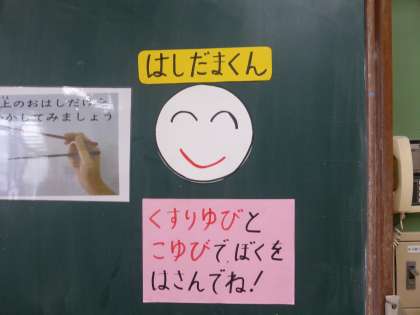 はしだまくん
上のおはしだけを
かしてみましょう
くすりゆびと
こゆびで、ぼくを
はさんでね！